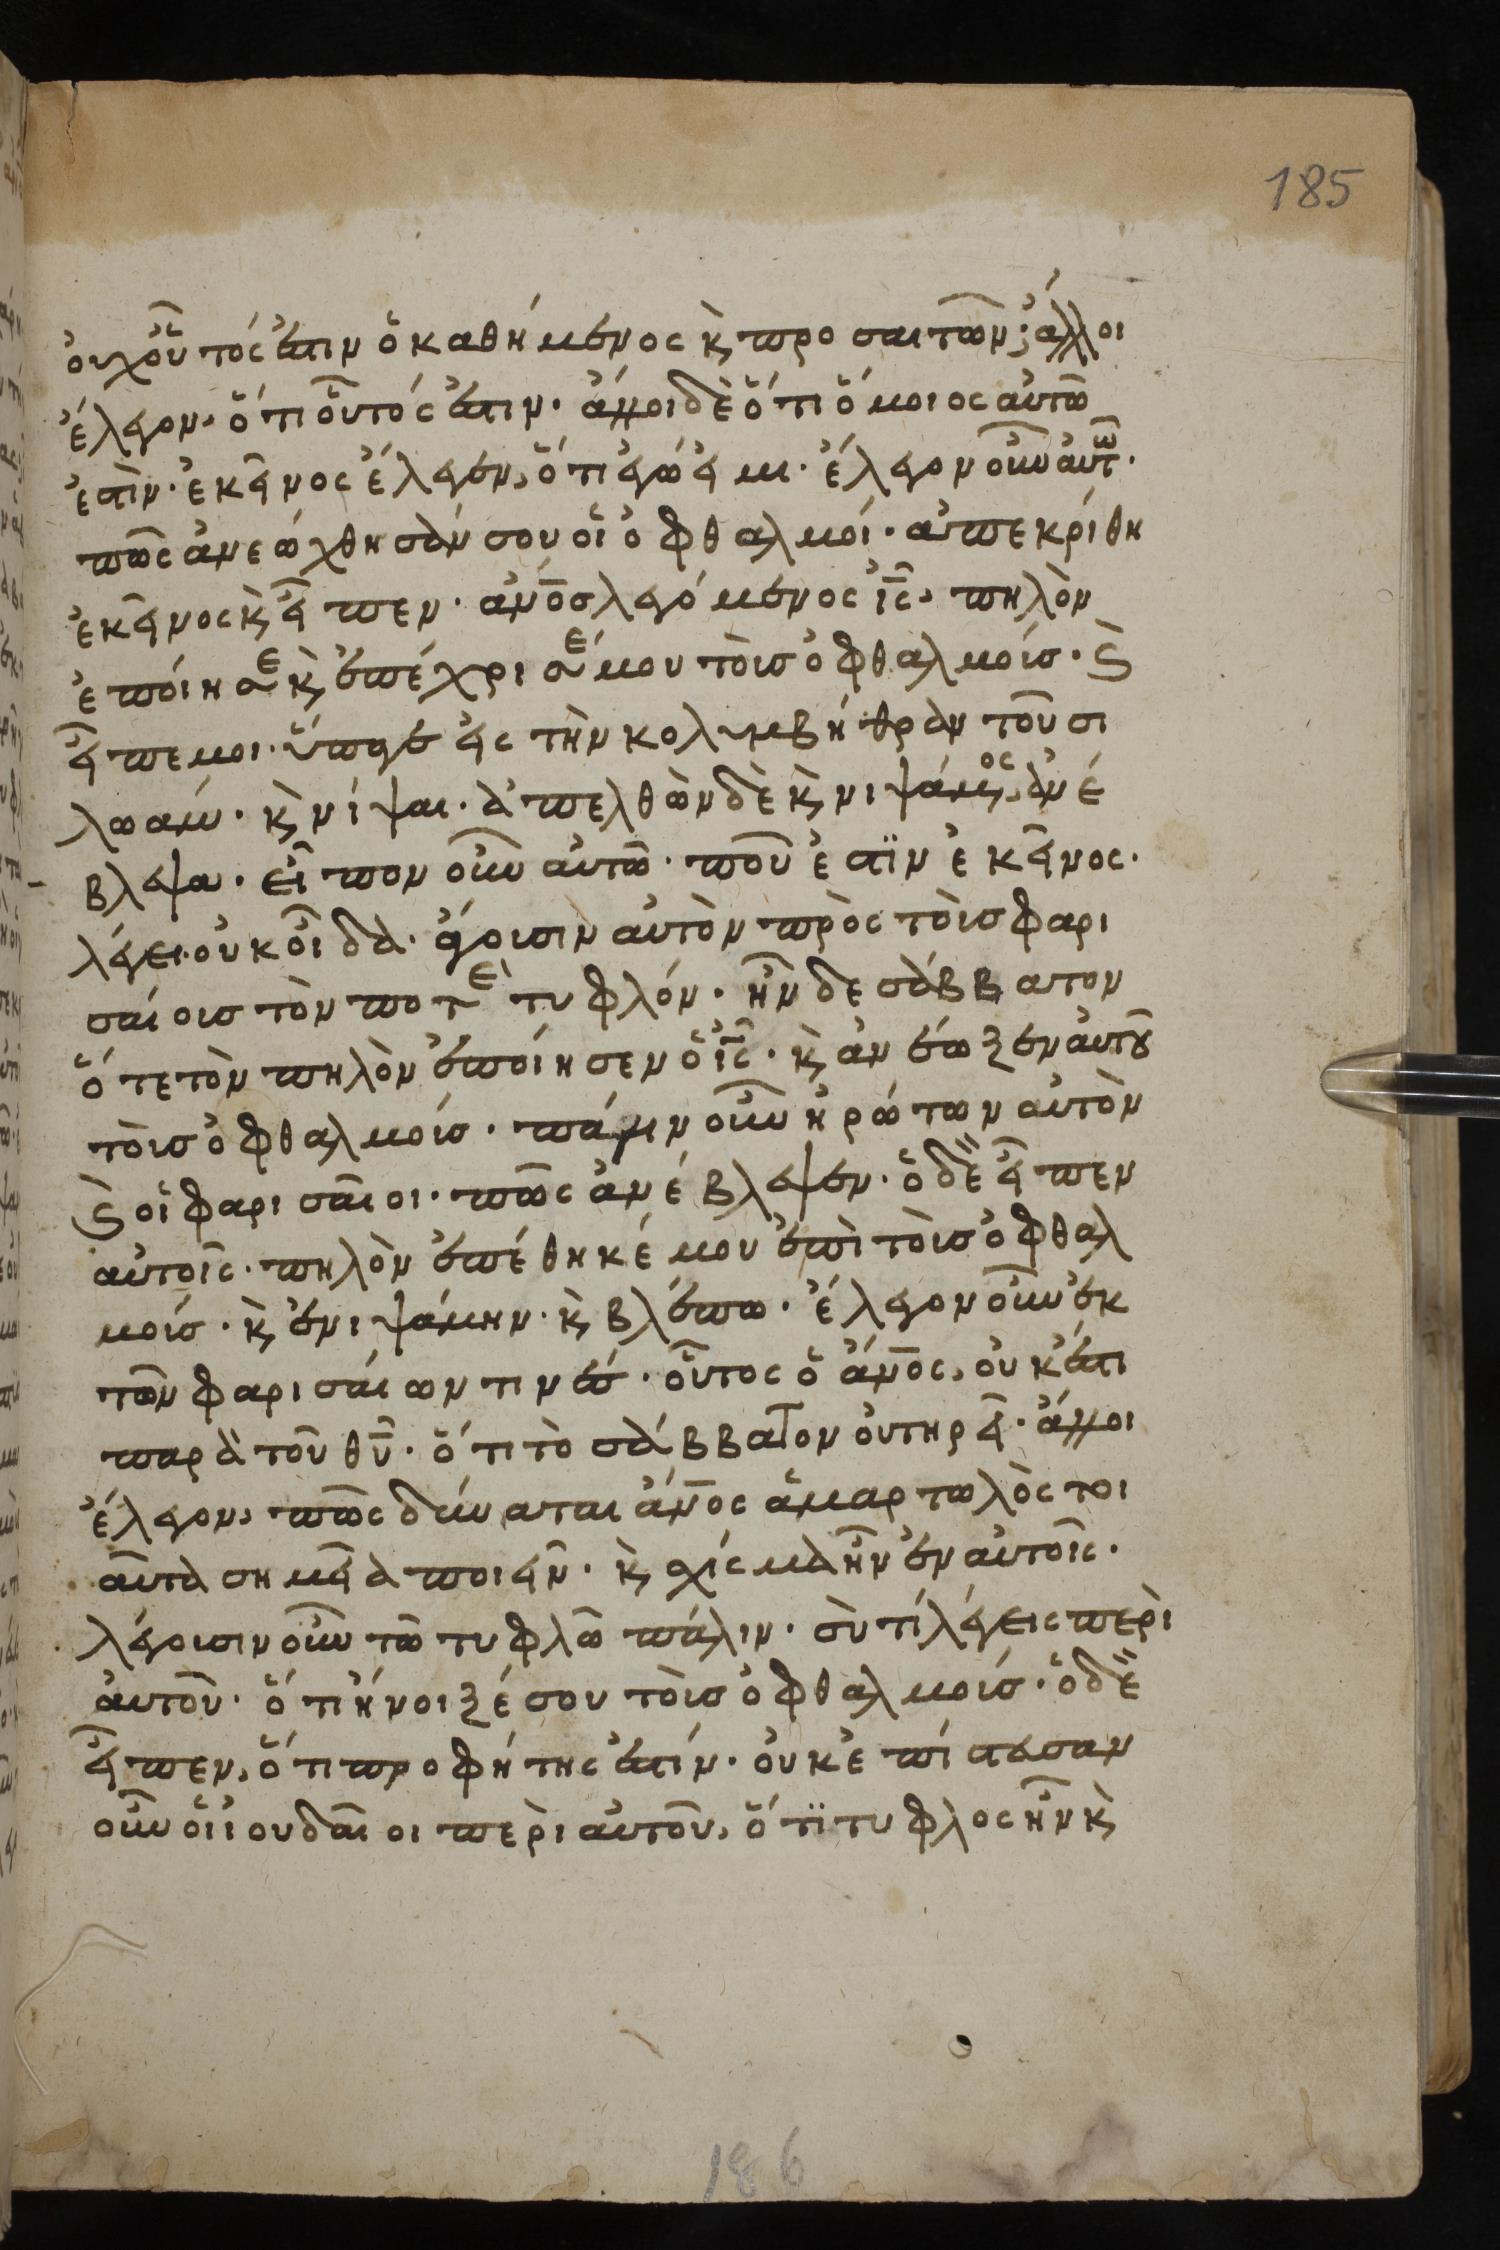 185
ὀυχοὗτός ἐστιν ὁ καθήμενος κ̀ προσαιτῶν; ἄλλοι
ἔλεγον. ὅτι οὗτός ἐστιν. ἄλλοι δὲ ὅτι ὅμοιος αὐτῶ
ἐστὶν. ἐκεῖνος ἔλεγεν, ὅτι ἐγώ εἰμι. ἔλεγον οὖν αὐτῶ.
πῶς ἀνεώχθησάν σου οἱ ὀφθαλμοί. ἀπεκρίθη
ἐκεῖνος κ̀ εἶπεν. ἄνο̅σ λεγόμενος ι̅ς̅, πηλὸν
ἐποίησε κ̀ ἐπέχρισέ μου τοὺσ ὀφθαλμούσ. κ̀
εἶπε μοι. ὕπαγε εἰς τὴν κολυμβήθραν τοῦ σι
λωάμ. κ̀ νίψαι. ἀπελθὼν δὲ κ̀ νιψάμενος, ἀνέ
βλεψα. εἶπον οὖν αὐτῶ. ποῦ ἐστϊν ἐκεῖνος.
λέγει. οὐκ οἶδα. ἄγουσιν αὐτὸν πρὸς τοὺσ φαρι
σαίουσ τὸν ποτεὶ τυφλόν. ἦν δε σάββατον
ὅτε τὸν πηλὸν ἐποίησεν ὁ ι̅ς̅. κ̀ ἀνέωξεν αὐτοῦ
τοὺσ ὀφθαλμούσ. πάλιν οὖν ἠρώτων αὐτὸν
κ̀ οἱ φαρισαῖοι. πῶς ἀνέβλεψεν. ὁ δὲ εἶπεν
αὐτοῖς. πηλὸν ἐπέθηκέ μου ἐπὶ τοὺσ ὀφθαλ
μούσ. κ̀ ἐνιψάμην. κ̀ βλέπω. ἔλεγον οὖν ἐκ
τῶν φαρισαίων τινές. οὗτος ὁ ἄνο̅ς, οὐκ ἔστι
παρὰ τοῦ θυ̅. ὅτι τὸ σάββατον οὐ τηρεῖ. ἄλλοι
ἔλεγον, πῶς δύναται ἄνο̅ς ἁμαρτωλὸς τοι
αῦτα σημεῖα ποιεῖν. κ̀ σχίσμα ἦν ἐν αὐτοῖς.
λέγουσιν οὖν τῶ τυφλῶ πάλιν. σὺ τί λέγεις περὶ
αὐτοῦ. ὅτι ἤνοιξέ σου τοὺσ ὀφθαλμούσ. ὁ δὲ
εἶπεν, ὅτι προφήτης ἐστίν. οὐκ ἐπίστευσαν
οὖν οἱ ἰουδαῖοι περὶ αὐτοῦ, ὅτϊ τυφλος ἦν κ̀
186